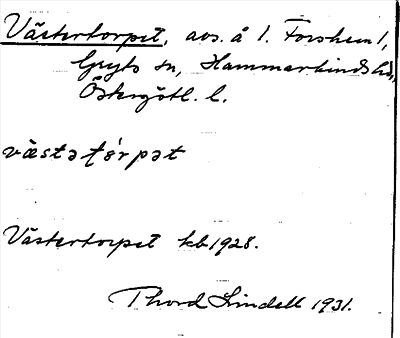 Västertorpet, avs. å 1. Forshem 1,
Gryts sn, Hammarkinds hd,
Östergötl. l.
västətórpət
Västertorpet kb 1928.
Thord Lindell 1931.